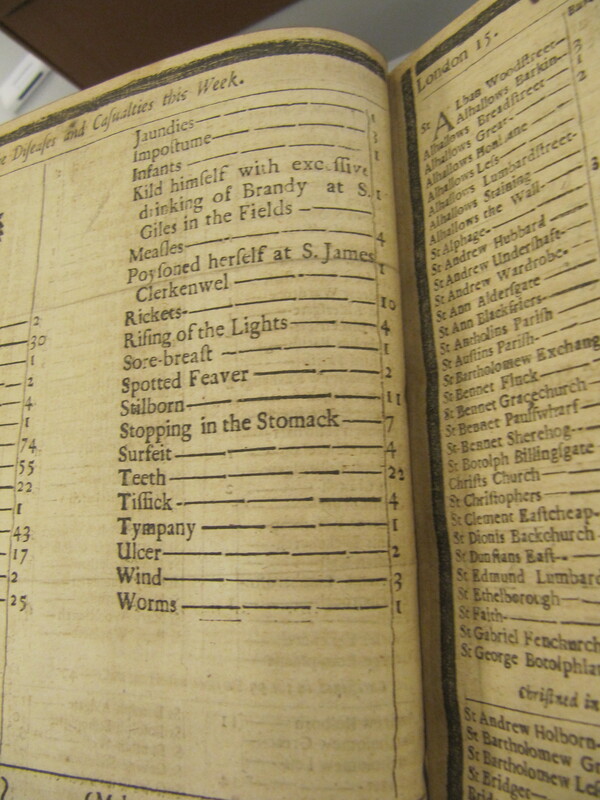 e Diſeaſes and Caſualties this Week.
2
30
1
2
4
1
74
55
22
1
43
17
2
25
Jaundies 1
Impoſtume 3
Infants 1
Kild himſelf with exceſſive
drinking of Brandy at S. 1
Giles in the Fields
Meaſles 4
Poyſoned herſelf at S. James 1
Clerkenwel
Rickets 10
Riſing of the Lights 4
Sore-breaſt 1
Spotted Feaver 2
Stilborn 11
Stopping in the Stomack 7
Surfeit 4
Teeth 22
Tiſſick 4
Tympany 1
Ulcer 2
Wind 3
Worms 1
London 15.
St Alban Woodſtreet 3
Alhallows Barkin 1
Alhallows Breadſtreet 2
Alhallows Great
Alhallows Honilane
Alhallows Leſs
Alhallows Lumbardſtreet 3
Alhallows Staining
Alhallows the Wall
St Alphage
St Andrew Hubbard
St Andrew Underſhaft
St Andrew Wardrobe
St Ann Alderſgate
St Ann Blackfriers
St Antholins Pariſh
St Auſtins Pariſh
St Bartholomew Exchang
St Bennet Finck
St Bennet Gracechurch
St Bennet Paulſwharf
St Bennet Sherehog
St Botolph Billingſgate
Chriſts Church
St Chriſtophers
St Clement Eaſtcheap
St Dionis Backchurch
St Dunſtans Eaſt
St Edmund Lumbard
St Ethelborough
St Faith
St Gabriel Fenchurch
St George Botolphla
Chriſtned in
St Andrew Holborn
St Bartholomew Gr
St Bartholomew Leſ
St Bridget